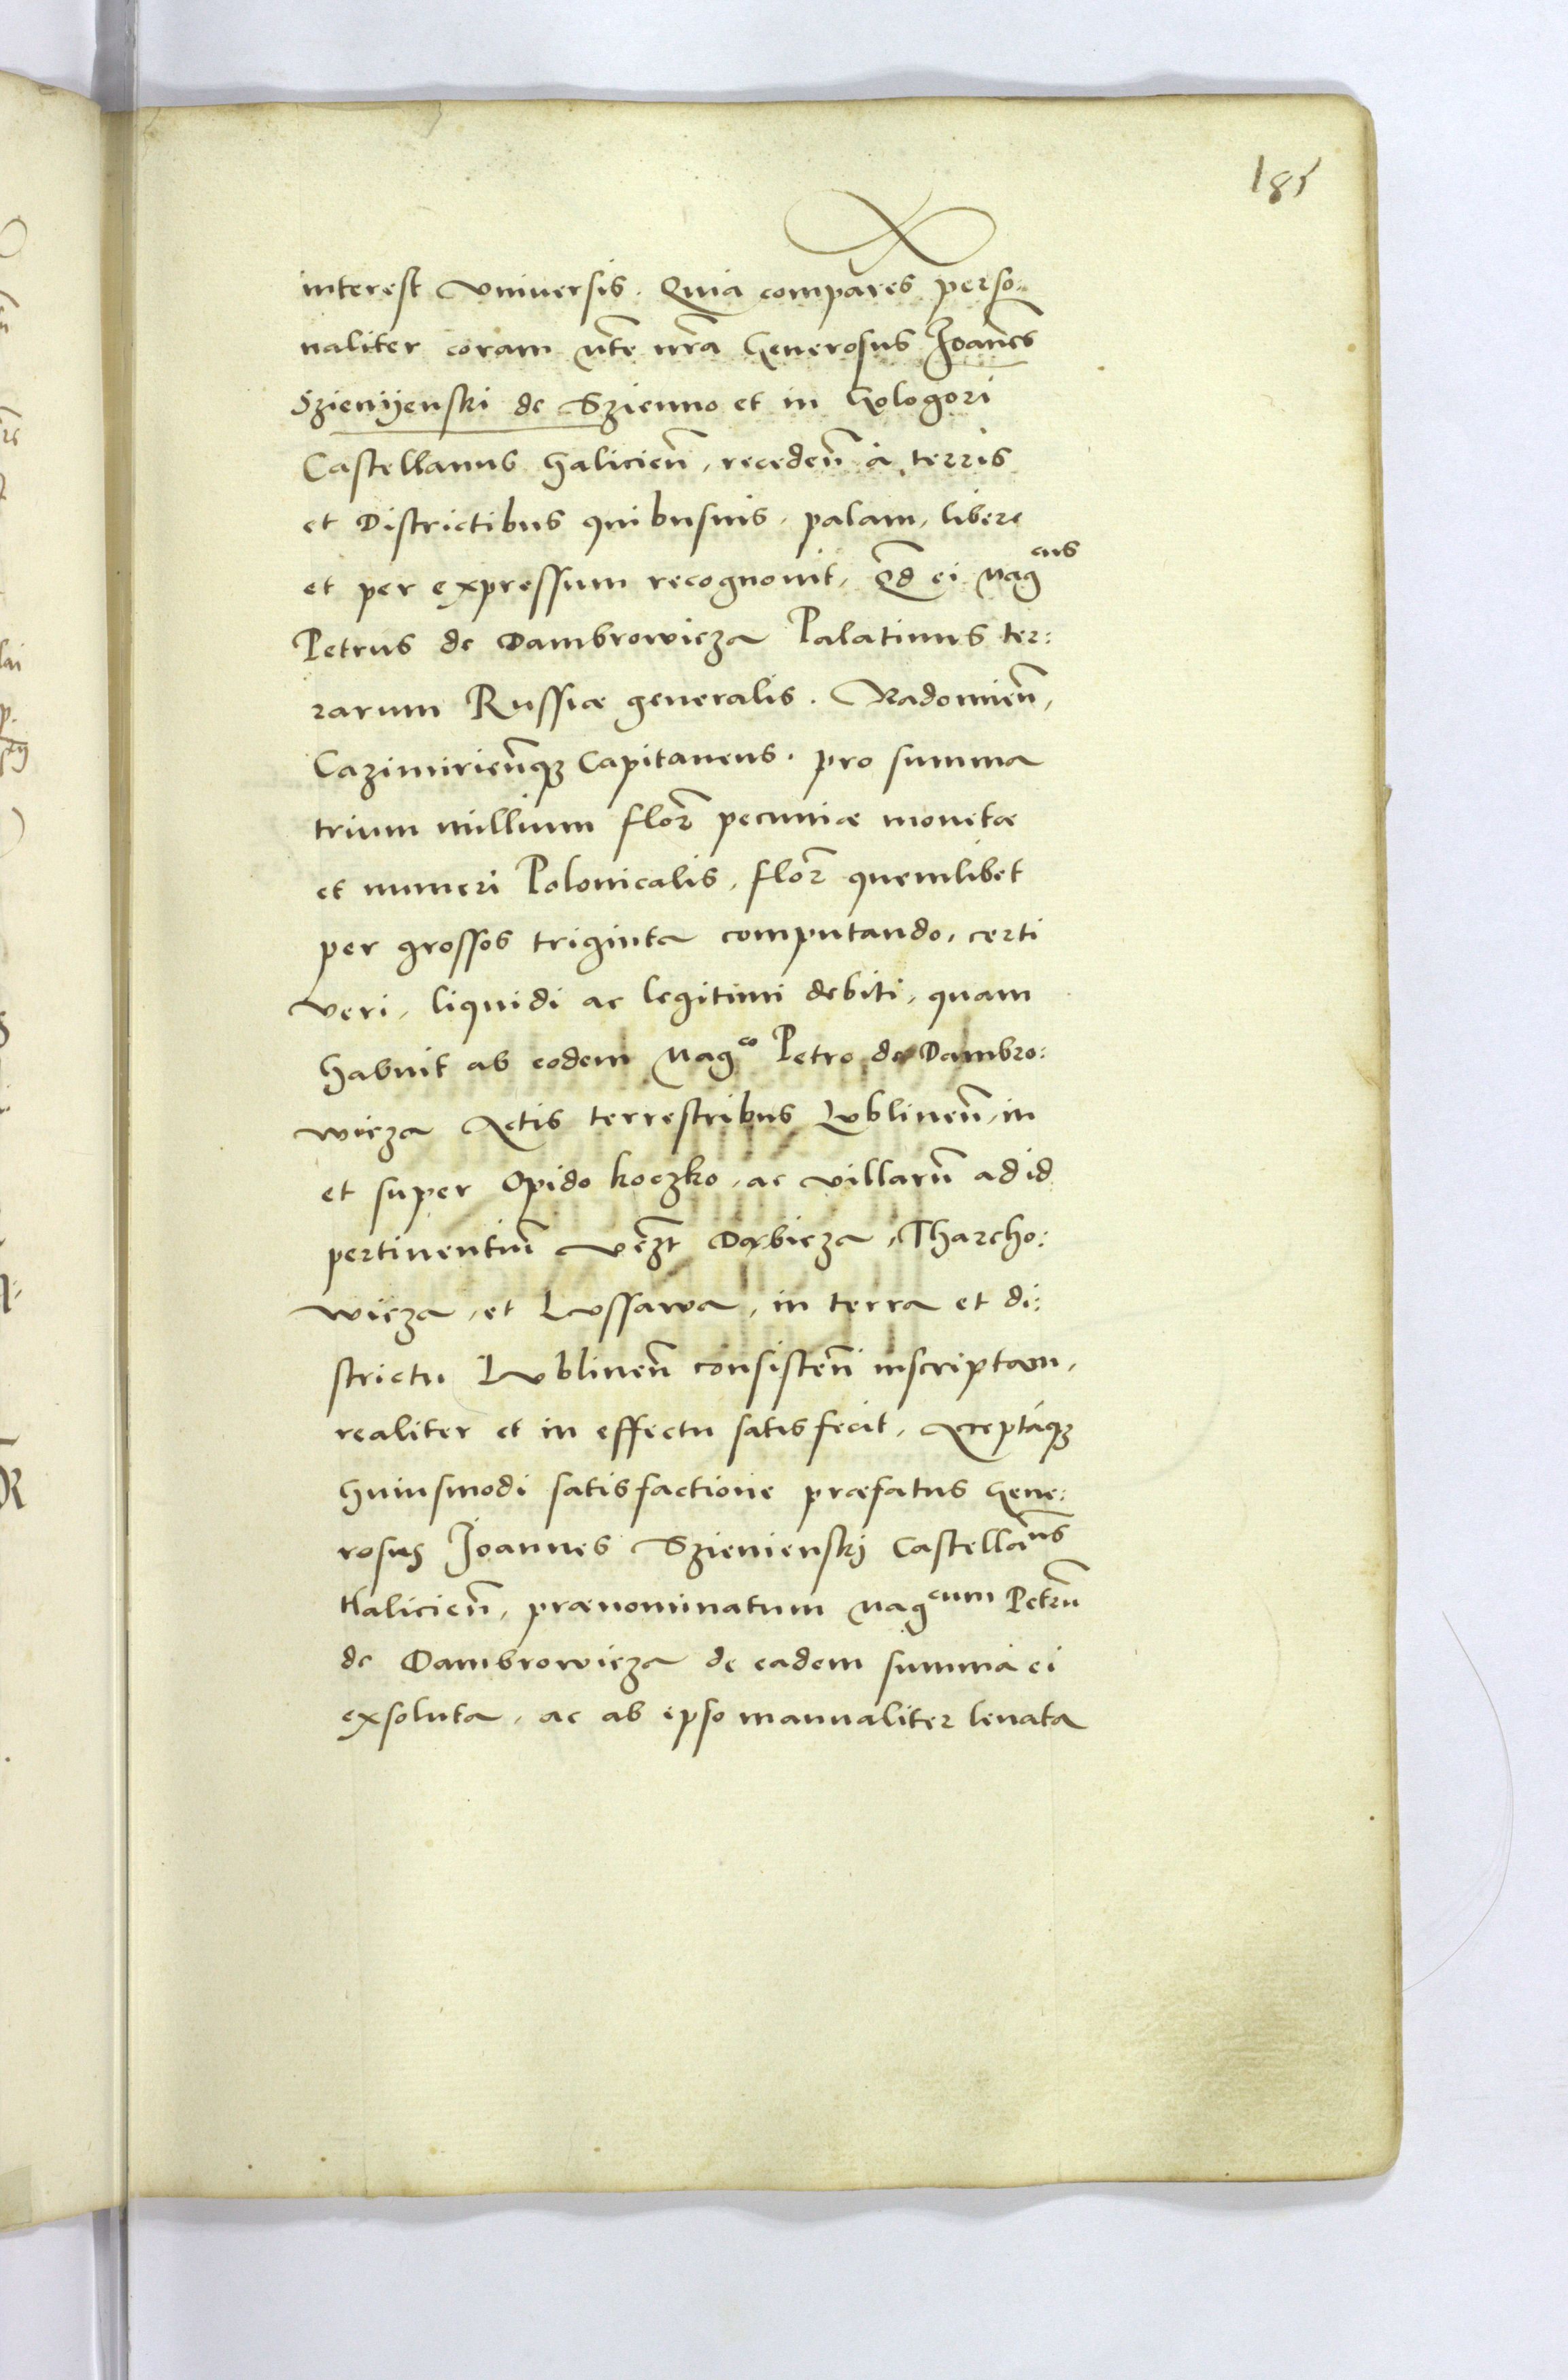 185
interest Vniuersis. Quia comparēs perso:
naliter coram Mte nrā Generosus Joanēs
Szienyenski de Szienno et in Gologori
Castellanus Halicień, recedeń à terris
et Districtibus quibusuis, palam, libere
et per expressum recognouit, Qđ ei Magcus
Petrus de Dambrowicza Palatinus ter:
rarum Russiæ generalis. Radomień,
Cazimirieńqꝫ Capitaneus. pro summa
trium millium flor̃ pecuniæ monetæ
et numeri Polonicalis, flor̃ quemlibet
per grossos triginta computando, certi
veri, liquidi ac legitimi debiti, quam
habuit ab eodem Magco Petro de Dambro:
wicza Actis terrestribus Lublineń, in
et super Opido Koczko, ac villarū ad id
pertinentiū vꝫt Dąbicza, Tharcho:
wicza, et Lussawa, in terra et di:
strictu Lublineń consisteń inscriptam,
realiter et in effectu satisfecit, Acceptáqꝫ
huiusmodi satisfactione præfatus Gene:
rosus Joannes Szienienskj Castellanus
Halicień, prænominatum Magcum Petrū
de Dambrowicza de eadem summa ei
exsoluta, ac ab ipso manualiter leuata